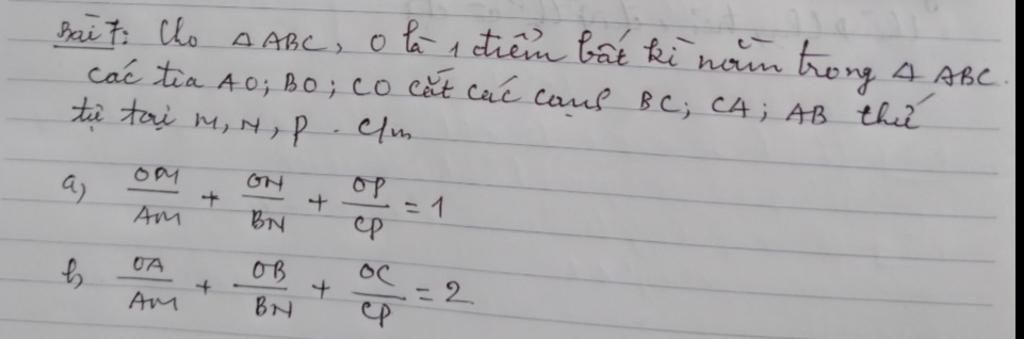 Bài 7: Cho ΔABC, O là 1 điểm bất kì nằm trong ΔABC.
các tia AO; BO; CO cắt các cạnh BC; CA; AB thứ
tự tại M, N, P. C/m
a, OM/AM + ON/BN + OP/CP = 1
b, OA/AM + OB/BN + OC/CP = 2